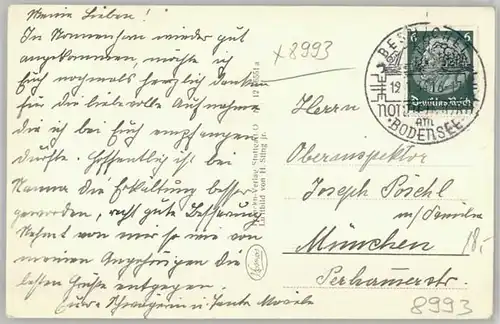 Meine Lieben!
In Sonnenhain wieder gut
angekommen, möchte ich
Euch nochmals herzlich danken
für die liebevolle Aufnahme
die ich bei Euch empfangen
durfte. Hoffentlich ist bei
Mama die Erkältung besser
geworden, recht gute Besserung.
Nehmt von mir so wie von
meinen Angehörigen die
besten Grüße entgegen.
Eure Schwägerin u. Tante
x8993
Verlag Stuttgart-O
Luftbild von H. Sting jr.
6
Deutsches Reich
BODENSEE
AM
Herrn
Oberinspektor
Joseph Pöschl
u/ Familie
München
18.-
8993